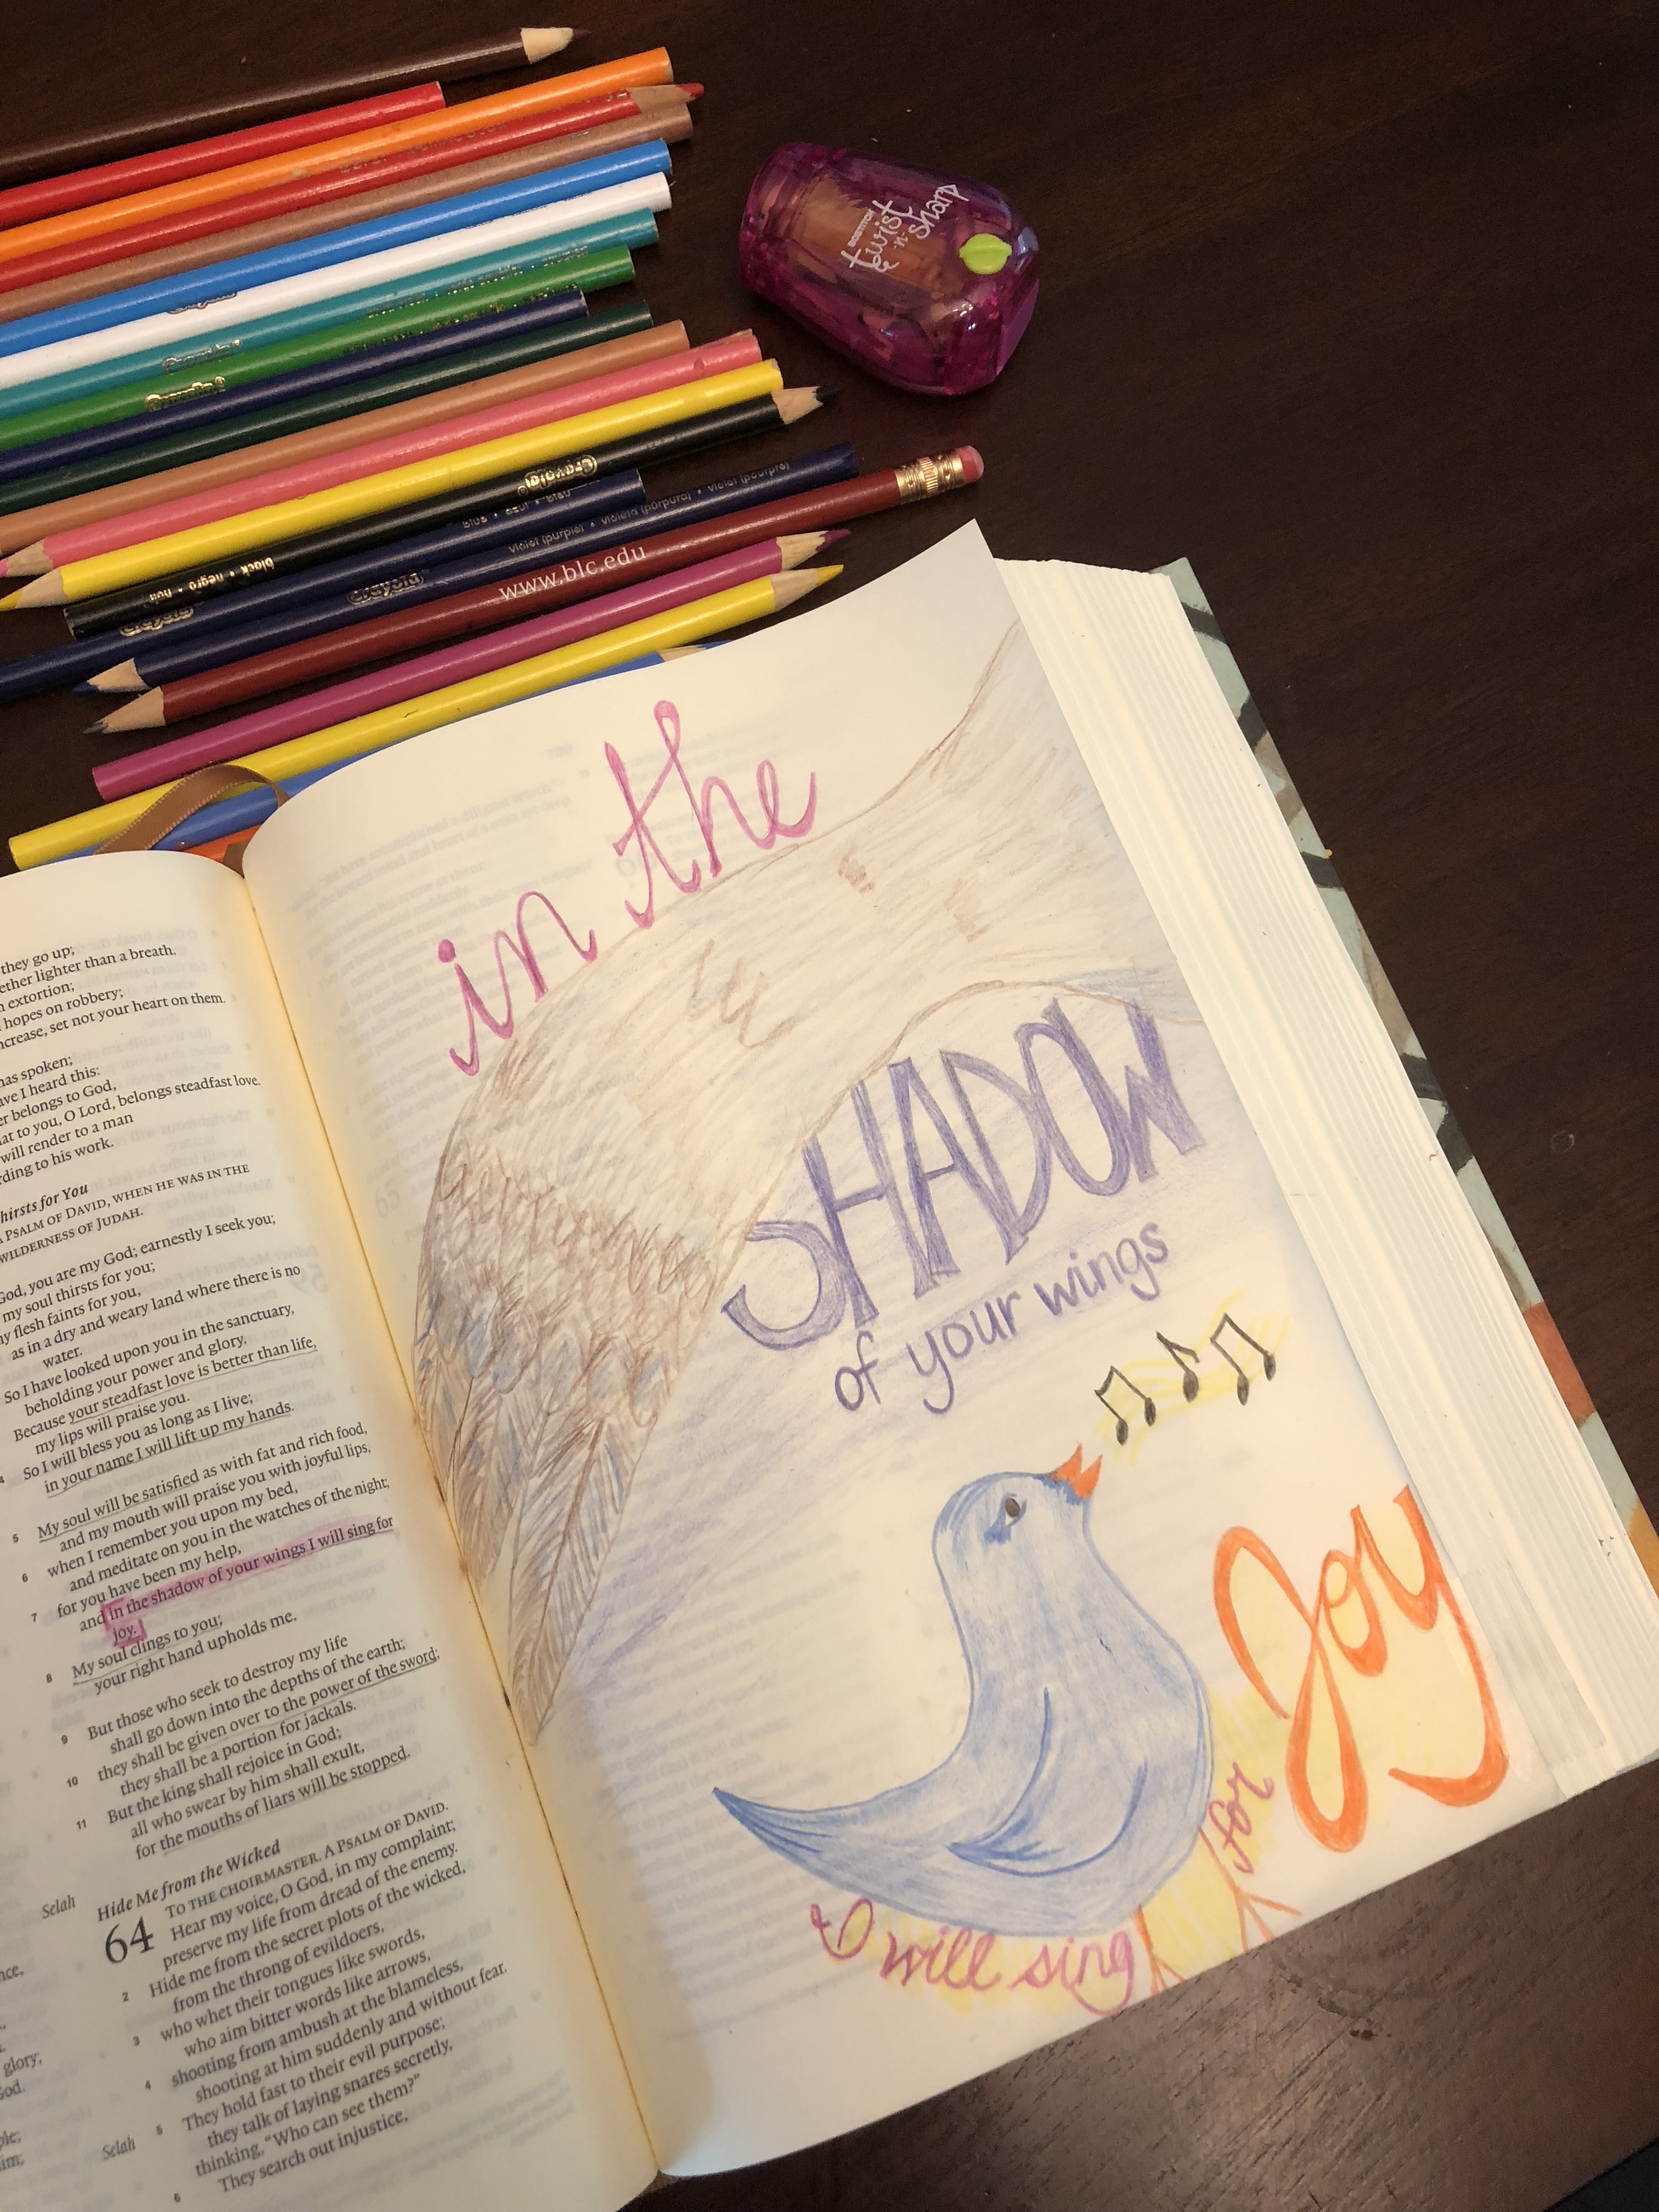 BOSTITCH
twist
-n-
sharp
Crayola
Crayola
Crayola
Crayola
black • negro • noir
Blue • azul • bleu
Crayola
violet (purple) • violeta (púrpura) • violet (pourpre)
Crayola
www.blc.edu
in the
SHADOW
of your wings
Joy
for
I will sing
they go up;
lighter than a breath.
extortion;
hopes on robbery;
set not your heart on them.
has spoken;
have I heard this:
belongs to God,
to you, O Lord, belongs steadfast love.
will render to a man
to his work.
Thirsts for You
A PSALM OF DAVID, WHEN HE WAS IN THE
WILDERNESS OF JUDAH.
God, you are my God; earnestly I seek you;
my soul thirsts for you;
my flesh faints for you,
as in a dry and weary land where there is no
water.
So I have looked upon you in the sanctuary,
beholding your power and glory.
Because your steadfast love is better than life,
my lips will praise you.
4 So I will bless you as long as I live;
in your name I will lift up my hands.
5 My soul will be satisfied as with fat and rich food,
and my mouth will praise you with joyful lips,
6 when I remember you upon my bed,
and meditate on you in the watches of the night;
7 for you have been my help,
and in the shadow of your wings I will sing for
joy.
8 My soul clings to you;
your right hand upholds me.
9 But those who seek to destroy my life
shall go down into the depths of the earth;
10 they shall be given over to the power of the sword;
they shall be a portion for jackals.
11 But the king shall rejoice in God;
all who swear by him shall exult,
for the mouths of liars will be stopped.
Hide Me from the Wicked
64 TO THE CHOIRMASTER. A PSALM OF DAVID.
Selah
Hear my voice, O God, in my complaint;
preserve my life from dread of the enemy.
2 Hide me from the secret plots of the wicked,
from the throng of evildoers,
3 who whet their tongues like swords,
who aim bitter words like arrows,
4 shooting from ambush at the blameless,
shooting at him suddenly and without fear.
5 They hold fast to their evil purpose;
they talk of laying snares secretly,
thinking, “Who can see them?”
6 They search out injustice,
glory;
Selah